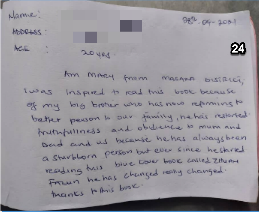 Name:
28th-09-2021
ADDRESS:
24
AGE : 20 yrs
Am Mercy from Masaka District,
I was inspired to read this book because
of my big brother who has now reforming to
better person to our family, he has restored
truthfulness and obidience to mum and
Dad and us because he has always been
a sturbborn person but ever since he started
reading this blue cover book called
he has changed really changed.
thanks to this book.